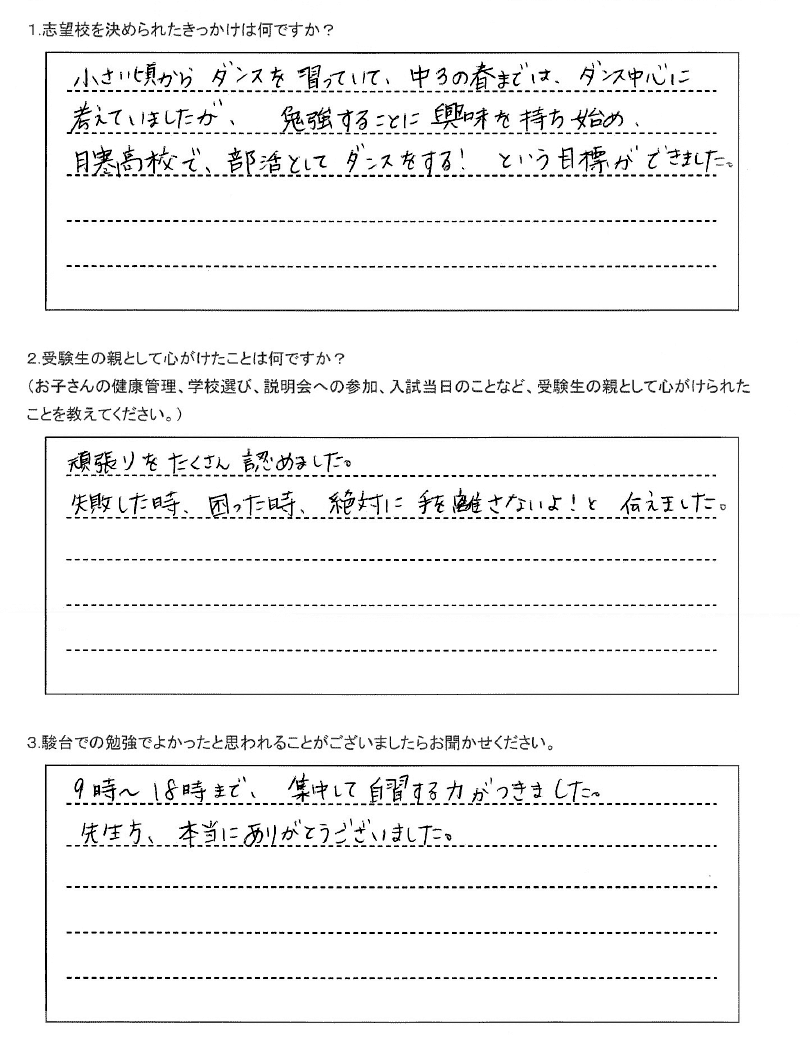 1.志望校を決められたきっかけは何ですか？
小さい頃から ダンスを 習っていて、中3の春までは、ダンス中心に
考えていましたが、 勉強することに興味を持ち始め、
月寒高校で、部活としてダンスをする! という目標ができました。
2.受験生の親として心がけたことは何ですか？
（お子さんの健康管理、学校選び、説明会への参加、入試当日のことなど、受験生の親として心がけられた
ことを教えてください。）
頑張りをたくさん 認めました。
失敗した時、困った時、絶対に手を離さないよ!と 伝えました。
3.駿台での勉強でよかったと思われることがございましたらお聞かせください。
9時～18時まで、集中して自習する力がつきました。
先生方、本当にありがとうございました。